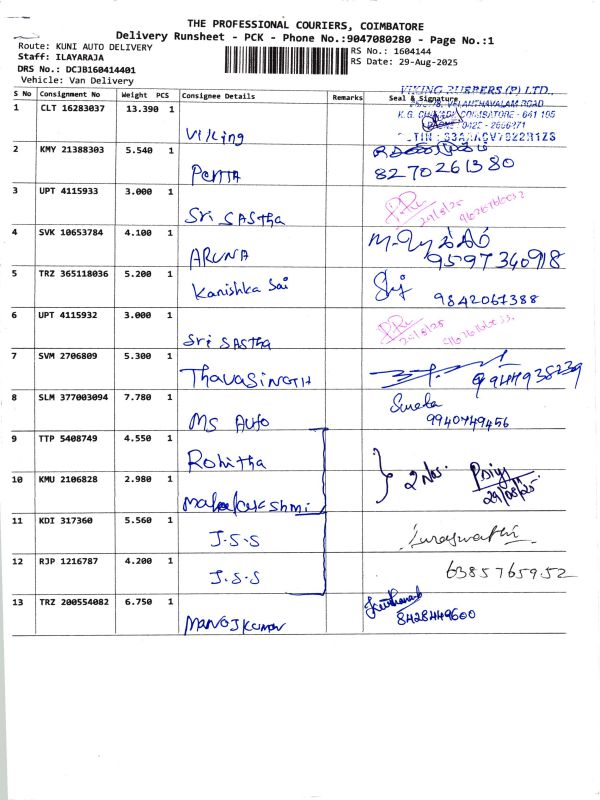 THE PROFESSIONAL COURIERS, COIMBATORE
Delivery Runsheet - PCK - Phone No.:9047080280 - Page No.:1
Route: KUNI AUTO DELIVERY
RS No.: 1604144
Staff: ILAYARAJA
RS Date: 29-Aug-2025
DRS No.: DCJB160414401
Vehicle: Van Delivery
S No Consignment No Weight PCS Consignee Details Remarks Seal & Signature
VIKING RUBBERS (P) LTD.,
VELANTHAVALAM ROAD
K.G. CHAVADI, COIMBATORE - 641 105
1 CLT 16283037 13.390 1 Viking
2 KMY 21388303 5.540 1 Penta 8270261380
3 UPT 4115933 3.000 1 Sri SAStha 29/8/25
4 SVK 10653784 4.100 1 ARUNA 9597340918
5 TRZ 365118036 5.200 1 Kanishka Sai 9842061388
6 UPT 4115932 3.000 1 Sri SAStha 29/8/25
7 SVM 2706809 5.300 1 Thavasingth 9944938239
8 SLM 377003094 7.780 1 MS Auto 9940749456
9 TTP 5408749 4.550 1 Rohitha
10 KMU 2106828 2.980 1 Mahalakshmi 2 Nos. Priya 29/08/25
11 KDI 317360 5.560 1 J.S.S
12 RJP 1216787 4.200 1 J.S.S 6385765952
13 TRZ 200554082 6.750 1 Manojkumar 8428449600